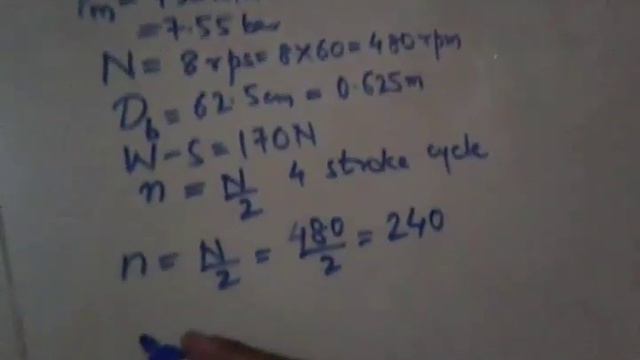 = 7.55 bar
N = 8 rps = 8×60 = 480 rpm
D_b = 62.5 cm = 0.625 m
W - S = 170 N
n = N/2 4 stroke cycle
n = N/2 = 480/2 = 240